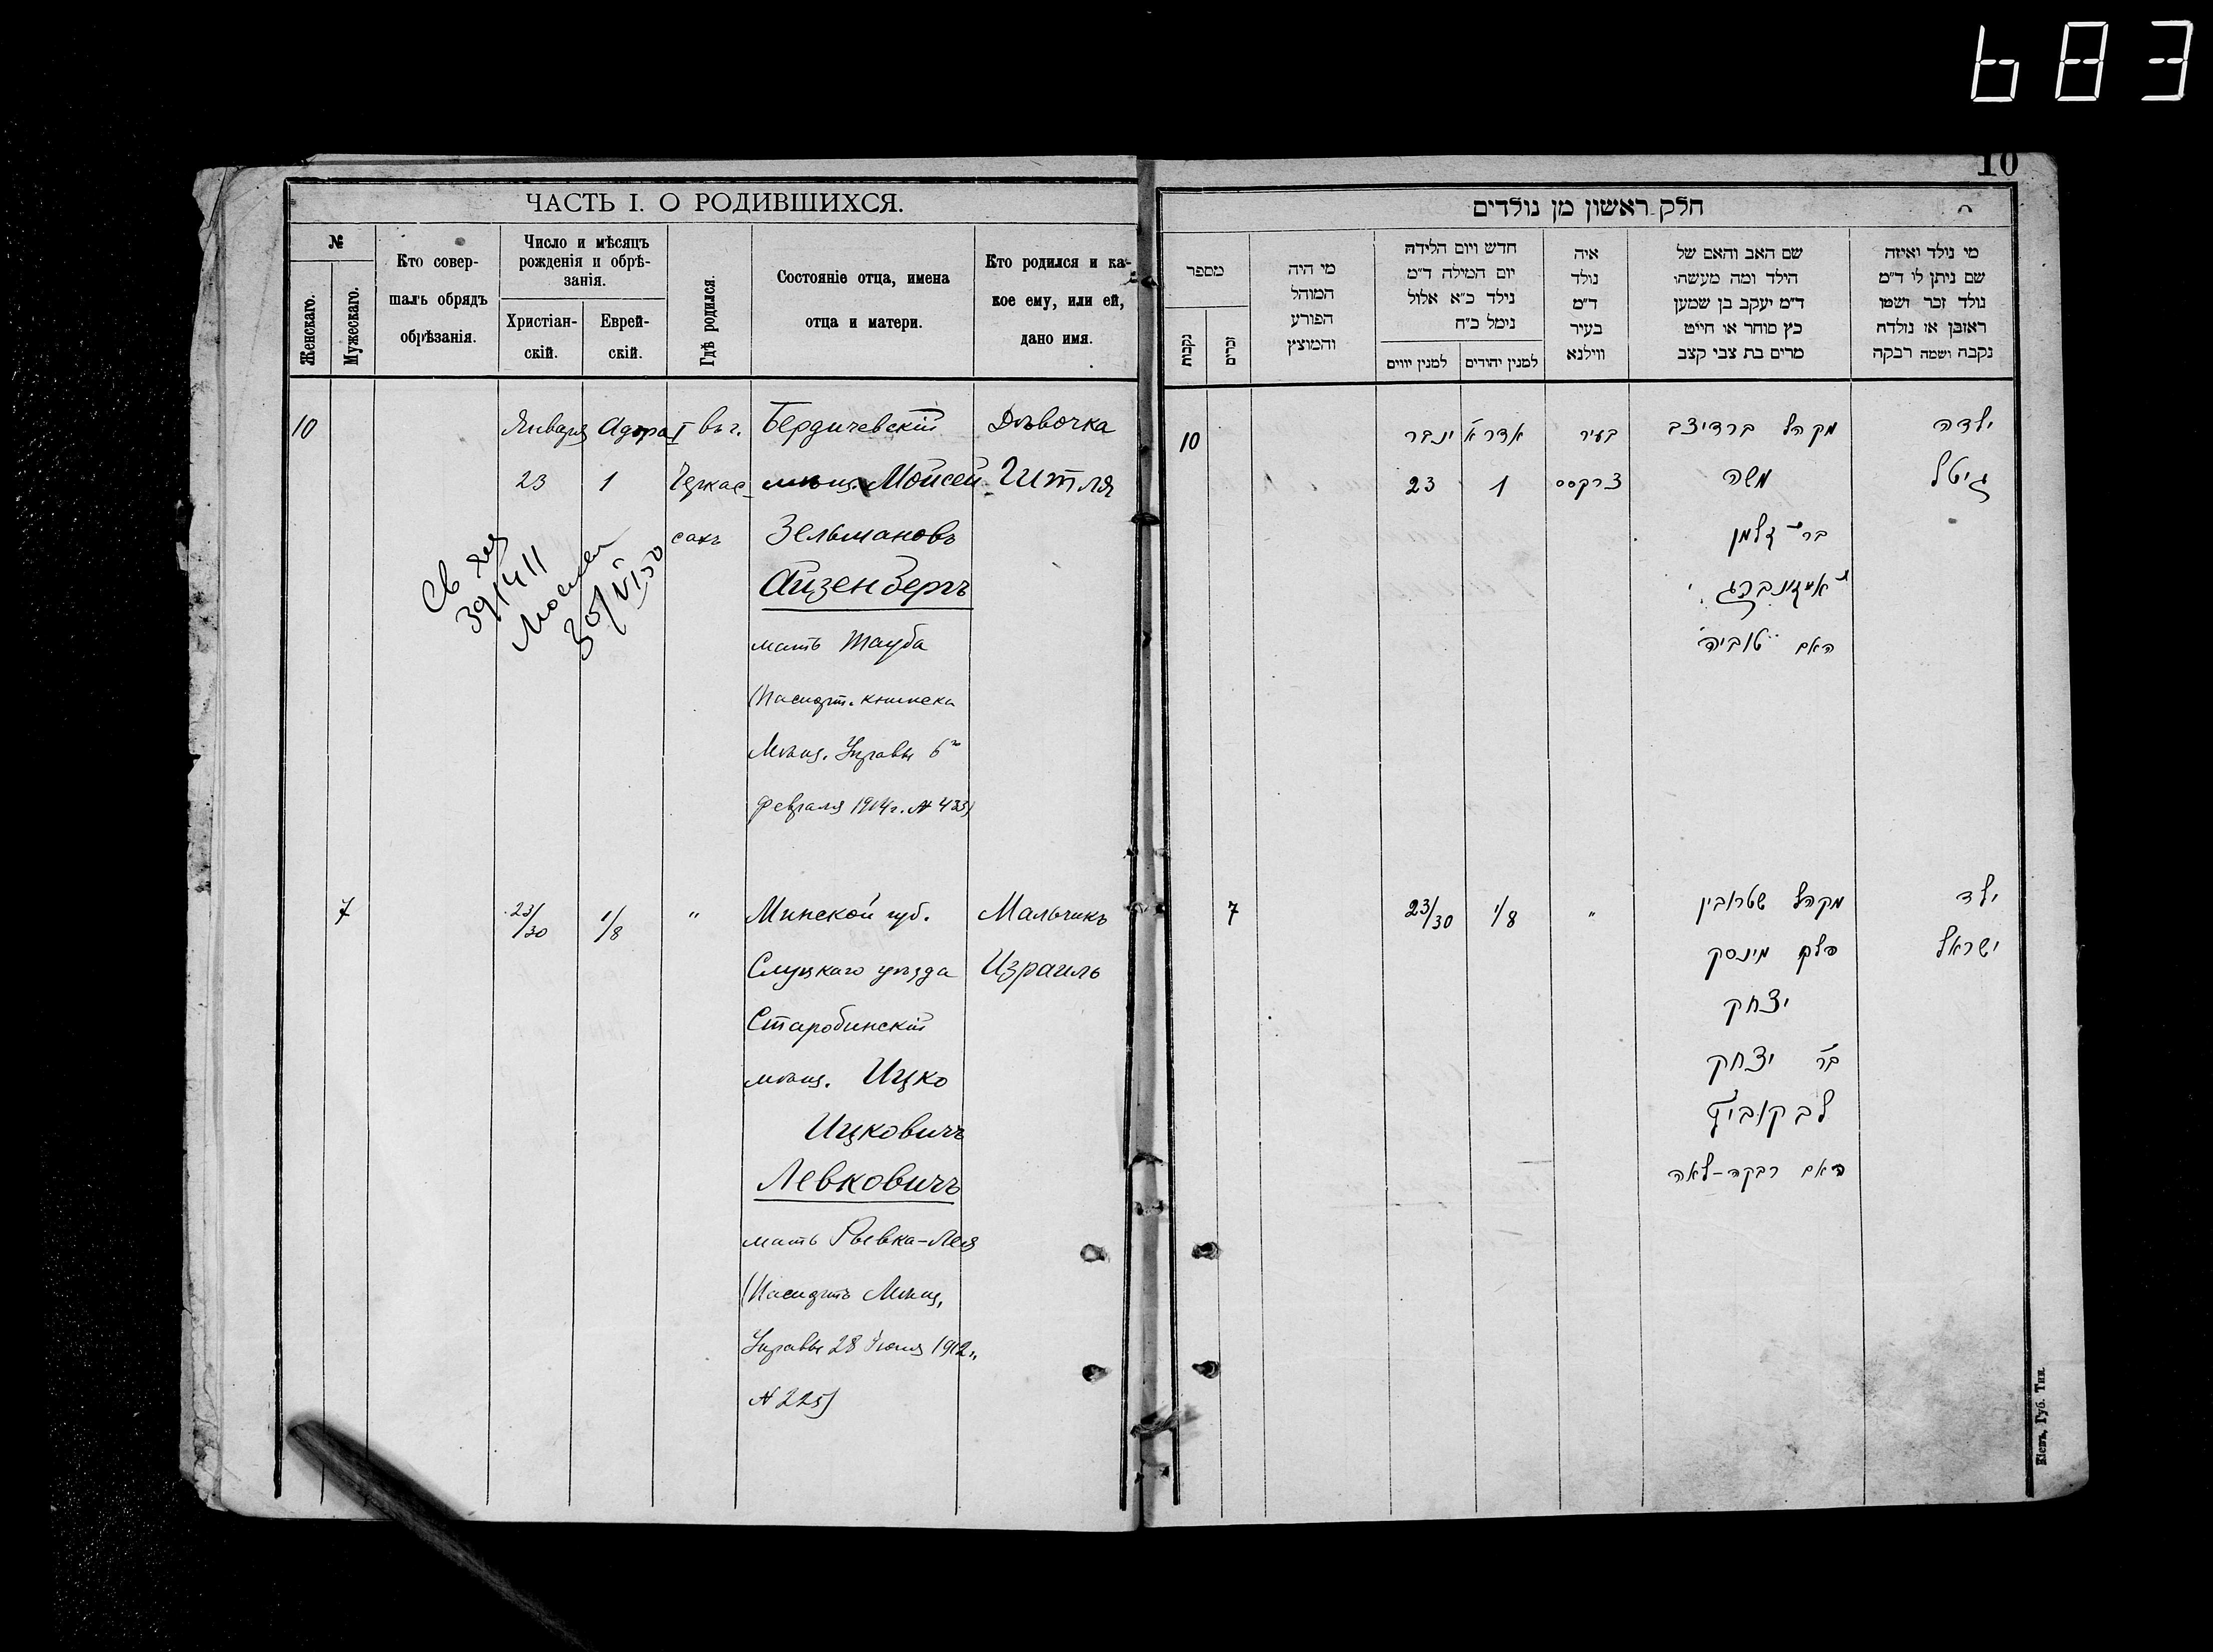 683
10
ЧАСТЬ I. О РОДИВШИХСЯ.
№
Женскаго.
Мужескаго.
Кто совер-
шалъ обрядъ
обрѣзанія.
Число и мѣсяцъ
рожденія и обрѣ-
занія.
Христіан-
скій.
Еврей-
скій.
Гдѣ родился.
Состояніе отца, имена
отца и матери.
Кто родился и ка-
кое ему, или ей,
дано имя.
10
Января
23
Адора I
1
въ г.
Черкас-
сахъ
Бердичевскій
мѣщ. Мойсей
Зельмановъ
Айзенбергъ
мать Тауба
(Паспорт. книжка
Мѣщ. Управы 6го
февраля 1914 г. № 433)
Дѣвочка
Гитля
7
23/30
1/8
"
Минской губ.
Слуцкаго уѣзда
Старобинскій
мѣщ. Ицко
Ицковичъ
Левковичъ
мать Рывка-Лея
(Паспортъ Мѣщ.
Управы 28 Июня 1912 г.
№ 225)
Мальчикъ
Израиль
חלק ראשון מן נולדים
מספר
נקבות
זכרים
מי היה
המוהל
הפורע
והמוצץ
חדש ויום הלידה
יום המילה ד"מ
נילד כ"א אלול
נימל כ"ח
למנין יווים
למנין יהודים
איה
נולד
ד"מ
בעיר
ווילנא
שם האב והאם של
הילד ומה מעשהו
ד"מ יעקב בן שמען
כץ סוחר או חייט
מרים בת צבי קצב
מי נולד ואיזה
שם ניתן לו ד"מ
נולד זכר ושמו
ראובן או נולדה
נקבה ושמה רבקה
10
ינבר
23
אדר א
1
בעיר
צרקסס
מקהל ברדיצב
משה
בר זלמן
אייזינברג
האם טוביה
ילדה
גיטל
7
23/30
1/8
"
מקהל שטרובין
פלך מינסק
יצחק
בר יצחק
לבקוביץ
האם רבקה-לאה
ילד
ישראל
Кіевъ, Губ. Тип.